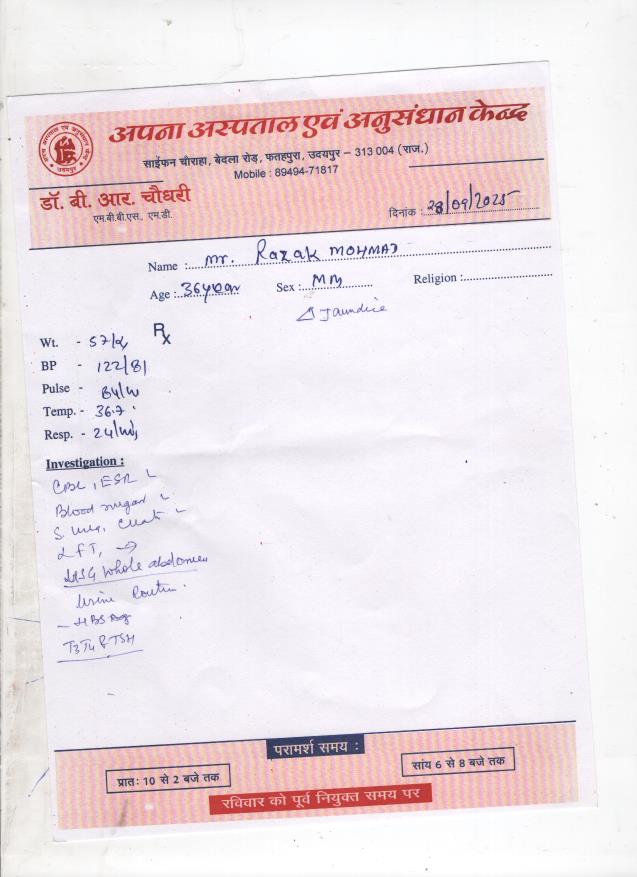 अपना अस्पताल एवं अनुसंधान केन्द्र
साईफन चौराहा, बेदला रोड़, फतहपुरा, उदयपुर – 313 004 (राज.)
Mobile : 89494-71817
डॉ. बी. आर. चौधरी
एम.बी.बी.एस., एम.डी.
दिनांक : 28/09/2025
Name : Mr. Razak MOHMAD
Age : 36year Sex : Religion :
Δ Jaundice
Rx
Wt. - 57
BP - 122/81
Pulse - 84/m
Temp. - 36.7
Resp. - 24/m
Investigation :
CBC, ESR
Blood sugar
S. Urea, Creat
LFT, →
USG whole abdomen
Urine Routine
- HBSAg
T3 T4 & TSH
परामर्श समय :
प्रातः 10 से 2 बजे तक
सांय 6 से 8 बजे तक
रविवार को पूर्व नियुक्त समय पर